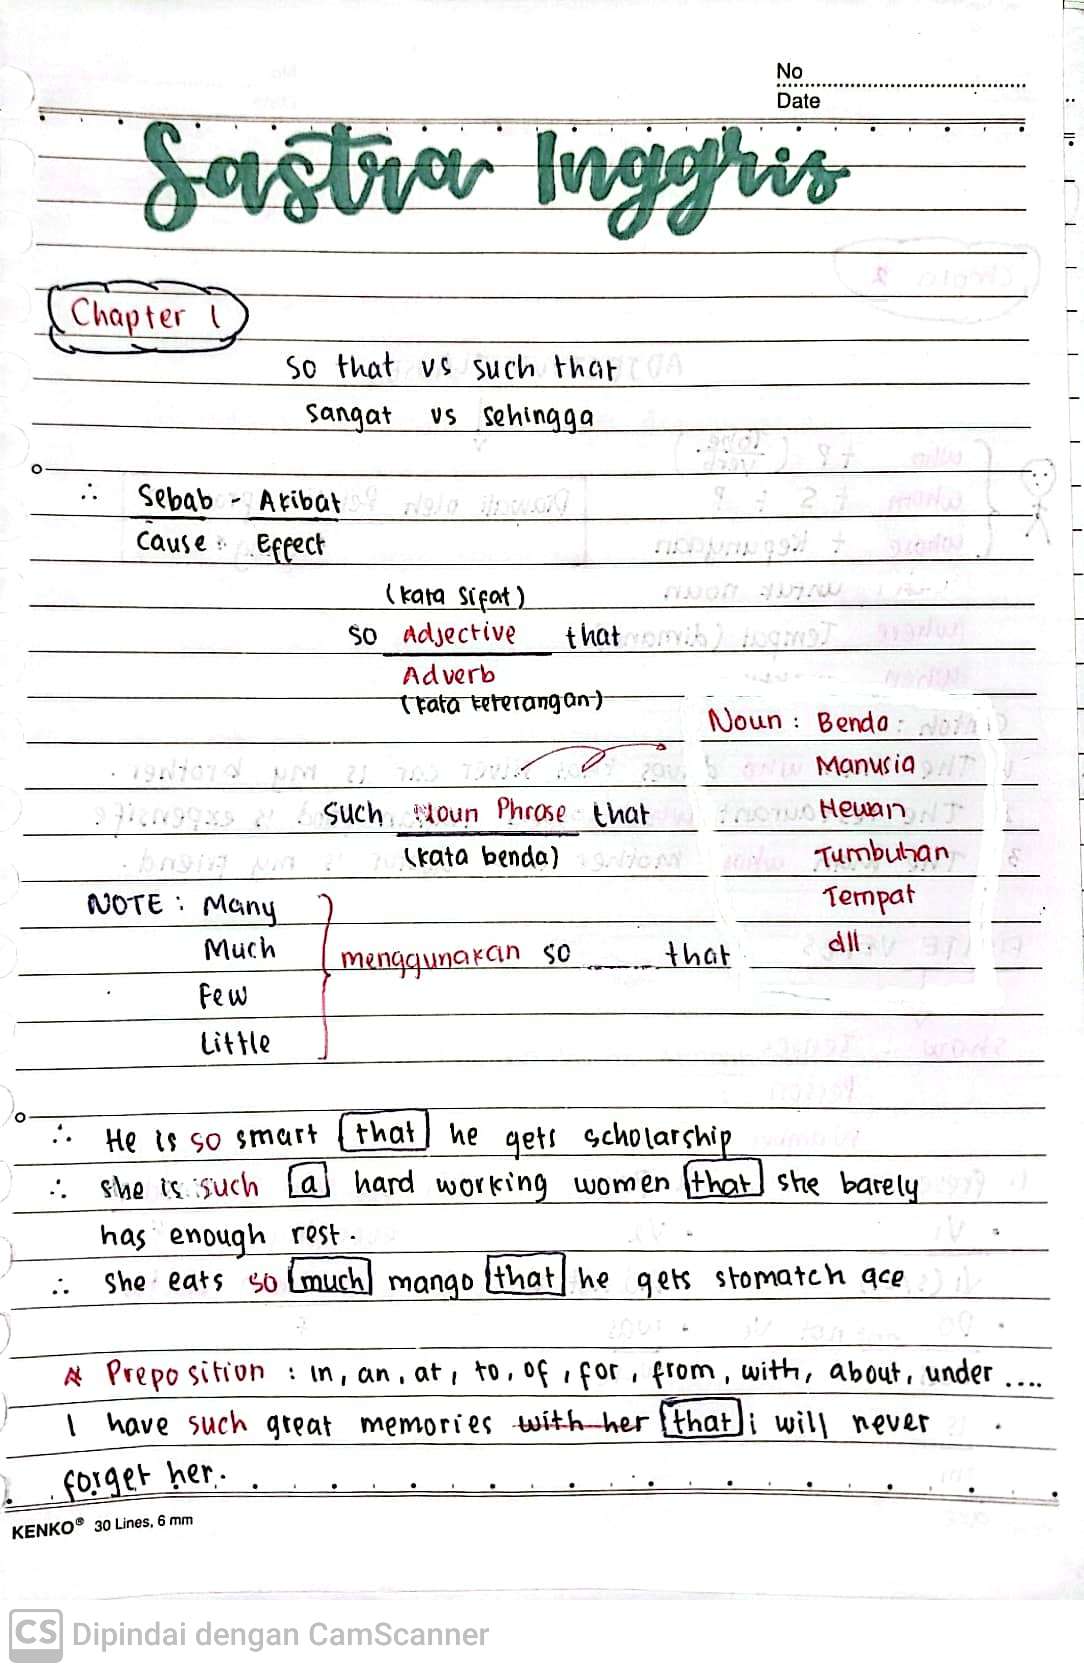 No
Date
Sastra Inggris
Chapter 1
so that vs such that
sangat vs sehingga
∴ Sebab - Akibat
Cause : Effect
(kata sifat)
so Adjective that
Adverb
(kata keterangan)
Noun : Benda
Manusia
such Noun Phrase that Hewan
(kata benda) Tumbuhan
NOTE : Many Tempat
Much menggunakan so ...... that dll.
Few
Little
∴ He is so smart that he gets scholarship
∴ she is such a hard working women that she barely
has enough rest.
∴ she eats so much mango that he gets stomatch ace
Preposition : in, an, at, to, of, for, from, with, about, under ....
I have such great memories with her that i will never
forget her.
KENKO® 30 Lines, 6 mm
CS Dipindai dengan CamScanner